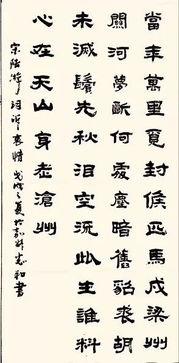 當年萬里覓封侯匹馬戍梁州
關河夢斷何處塵暗舊貂裘胡
未滅鬢先秋泪空流此生誰料
心在天山身老滄州
宋陸游詞訴衷情 戊戌之夏於 志和書